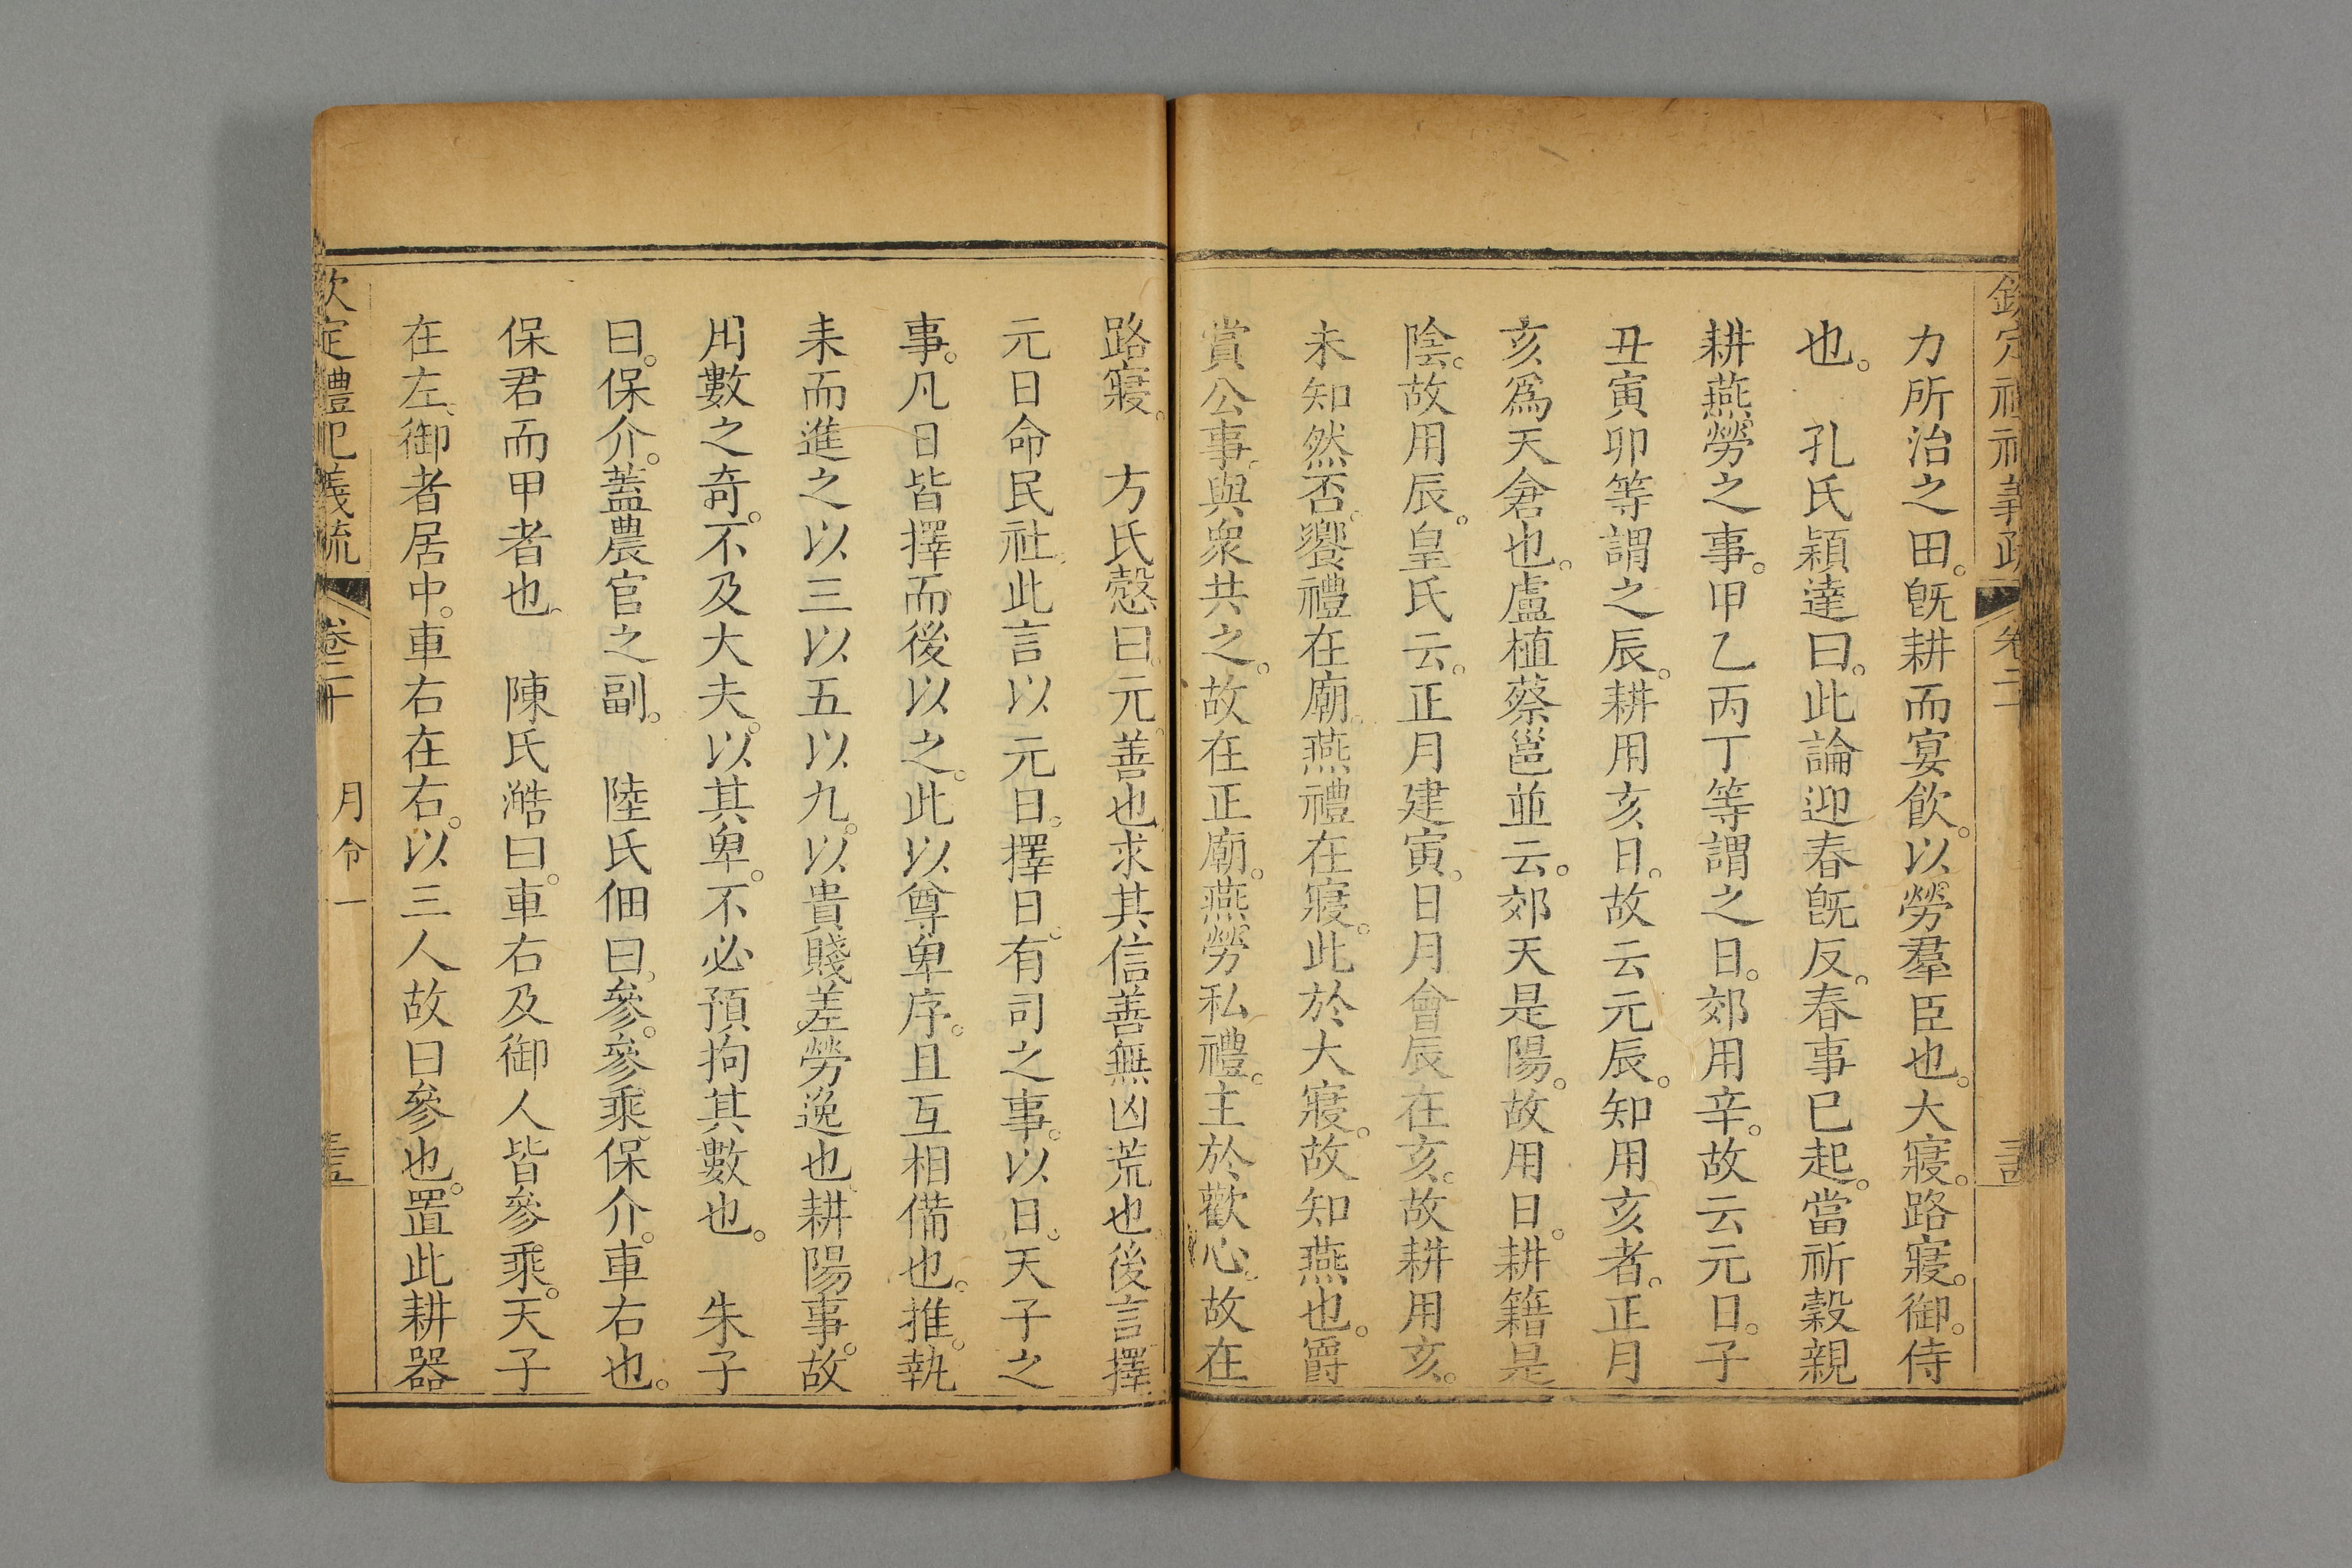 力所治之田。旣耕而宴飮。以勞羣臣也。大寢。路寢。御。侍
也。　孔氏穎達曰。此論迎春旣反。春事已起。當祈穀親
耕燕勞之事。甲乙丙丁等謂之日。郊用辛。故云元日。子
丑寅卯等謂之辰。耕用亥日。故云元辰。知用亥者。正月
亥爲天倉也。盧植蔡邕並云。郊天是陽。故用日。耕籍是
陰。故用辰。皇氏云。正月建寅。日月會辰在亥。故耕用亥。
未知然否。饗禮在廟。燕禮在寢。此於大寢。故知燕也。爵
賞公事。與衆共之。故在正廟。燕勞私禮。主於歡心。故在
路寢。　方氏慤曰。元。善也。求其信善無凶荒也。後言擇
元日命民社。此言以元日。擇日。有司之事。以日。天子之
事。凡日皆擇而後以之。此以尊卑序。且互相備也。推。執
耒而進之。以三以五以九。以貴賤差勞逸也。耕陽事。故
用數之奇。不及大夫。以其卑。不必預拘其數也。　朱子
曰。保介。蓋農官之副。　陸氏佃曰。參。參乘。保介。車右也。
保君而甲者也。　陳氏澔曰。車右及御人皆參乘。天子
在左。御者居中。車右在右。以三人故曰參也。置此耕器
欽定禮記義疏　卷二十　月令一